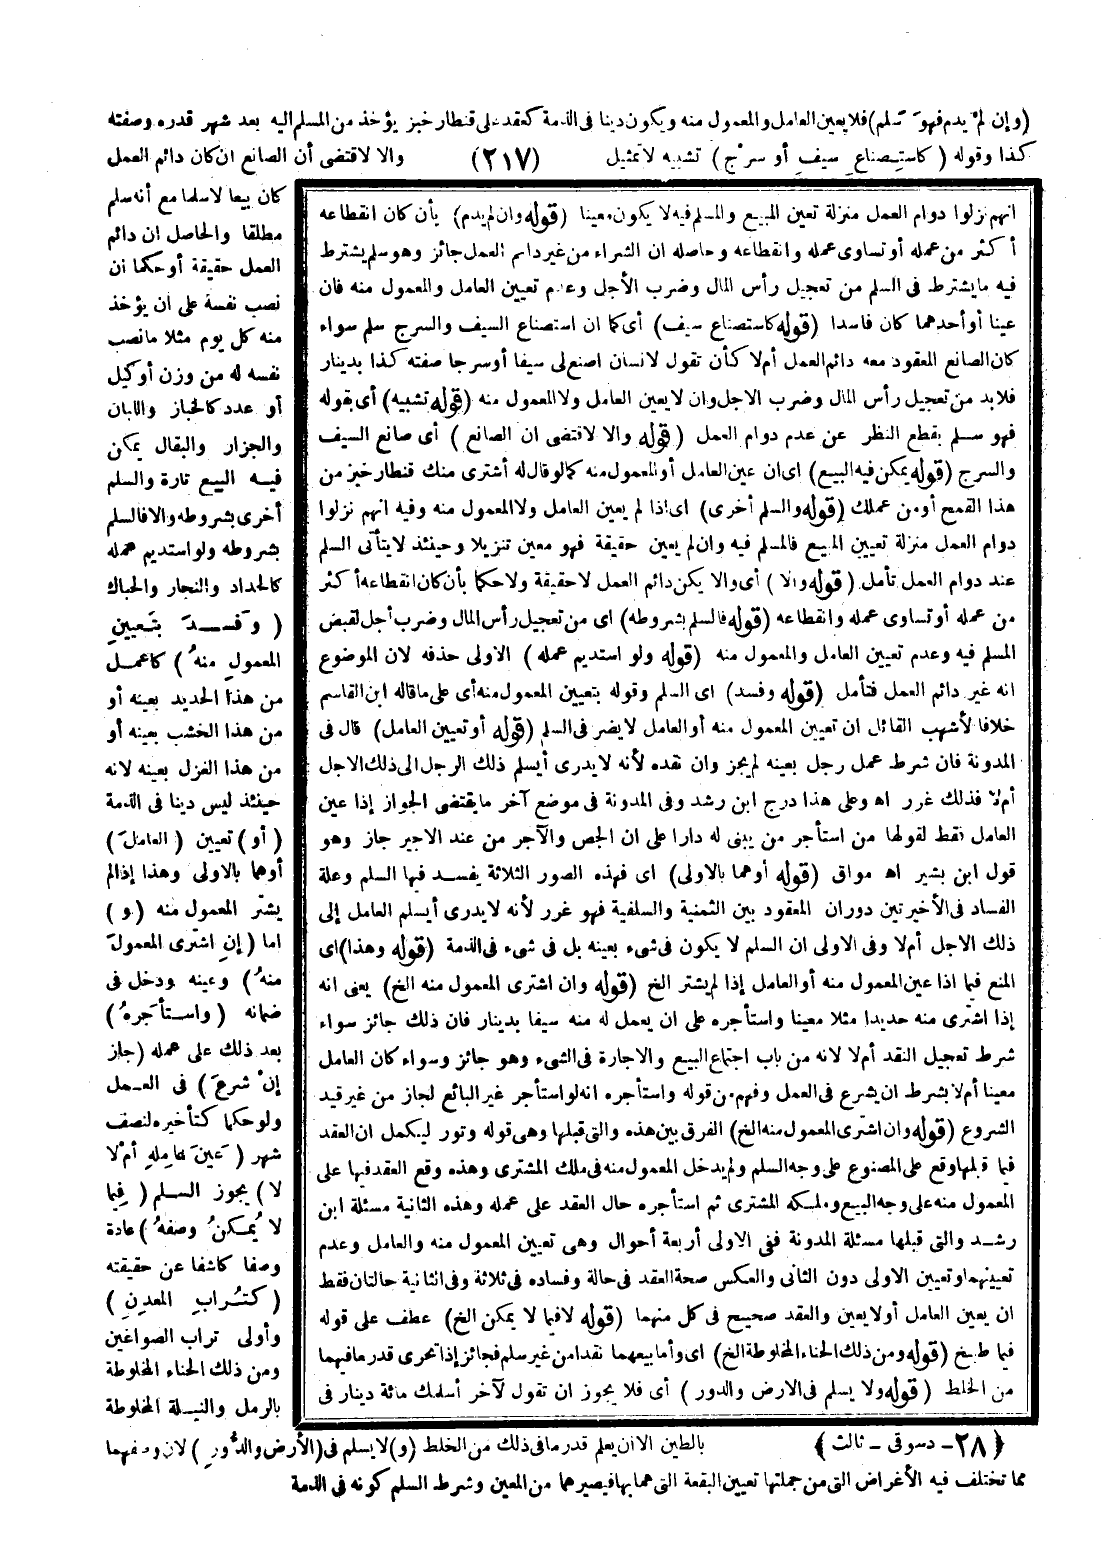 (وإن لمْ يدم فهوَ سَلم) فلا يعين العامل والمعمول منه ويكون دينا فى الذمة كعقد على قنطار خبز يؤخذ من المسلم اليه بعد شهر قدره وصفته
كذا وقوله (كاستِصناعِ سيفٍ أو سرْج) تشبيه لا تمثيل (٢١٧) والا لاقتضى أن الصانع ان كان دائم العمل
كان بيعا لا سلما مع أنه سلم
مطلقا والحاصل ان دائم
العمل حقيقة أو حكما ان
نصب نفسه على ان يؤخذ
منه كل يوم مثلا ما نصب
نفسه له من وزن أو كيل
أو عدد كالخباز واللبان
والجزار والبقال يمكن
فيه البيع تارة والسلم
أخرى بشروطه والا فالسلم
بشروطه ولو استديم عمله
كالحداد والنجار والحباك
(وَفسدَ بتَعيينِ
المعمولِ منهُ) كاعمل
من هذا الحديد بعينه أو
من هذا الخشب بعينه أو
من هذا الغزل بعينه لانه
حينئذ ليس دينا فى الذمة
(أو) تعيين (العاملِ)
أوهما بالاولى وهذا إذا لم
يشتر المعمول منه (و)
اما (إنِ اشترى المعمولَ
منهُ) وعينه ودخل فى
ضمانه (واستأجَرهُ)
بعد ذلك على عمله (جاز
إنْ شرعَ) فى العمل
ولو حكما كتأخيره لنصف
شهر (عَينَ عامِلهِ أمْ لا
لا) يجوز السلم (فيما
لا يُمكنُ وصفهُ) عادة
وصفا كاشفا عن حقيقته
(كتُرابِ المعدنِ)
وأولى تراب الصواغين
ومن ذلك الحناء المخلوطة
بالرمل والنيلة المخلوطة
بالطين الا ان يعلم قدر ما فى ذلك من الخلط (و) لا يسلم فى (الأرضِ والدُّورِ) لان وصفهما
مما تختلف فيه الأغراض التى من جملتها تعيين البقعة التى هما بها فيصيرهما من المعين وشرط السلم كونه فى الذمة
انهم نزلوا دوام العمل منزلة تعين المبيع والمسلم فيه لا يكون معينا (قوله وان لم يدم) بأن كان انقطاعه
أكثر من عمله أو تساوى عمله وانقطاعه وحاصله ان الشراء من غير دائم العمل جائز وهو سلم يشترط
فيه ما يشترط فى السلم من تعجيل رأس المال وضرب الأجل وعدم تعيين العامل والمعمول منه فان
عينا أو أحدهما كان فاسدا (قوله كاستصناع سيف) أى كما ان استصناع السيف والسرج سلم سواء
كان الصانع المعقود معه دائم العمل أم لا كأن تقول لانسان اصنع لى سيفا أو سرجا صفته كذا بدينار
فلا بد من تعجيل رأس المال وضرب الاجل وان لا يعين العامل ولا المعمول منه (قوله تشبيه) أى بقوله
فهو سلم بقطع النظر عن عدم دوام العمل (قوله والا لاقتضى ان الصانع) أى صانع السيف
والسرج (قوله يمكن فيه البيع) اى ان عين العامل أو المعمول منه كما لو قال له أشترى منك قنطار خبز من
هذا القمح أو من عملك (قوله والسلم أخرى) اى إذا لم يعين العامل ولا المعمول منه وفيه انهم نزلوا
دوام العمل منزلة تعيين المبيع فالمسلم فيه وان لم يعين حقيقة فهو معين تنزيلا وحينئذ لا يتأتى السلم
عند دوام العمل تأمل (قوله والا) أى والا يكن دائم العمل لا حقيقة ولا حكما بأن كان انقطاعه أكثر
من عمله أو تساوى عمله وانقطاعه (قوله فالسلم بشروطه) اى من تعجيل رأس المال وضرب أجل لقبض
المسلم فيه وعدم تعيين العامل والمعمول منه (قوله ولو استديم عمله) الاولى حذفه لان الموضوع
انه غير دائم العمل فتأمل (قوله وفسد) اى السلم وقوله بتعيين المعمول منه أى على ما قاله ابن القاسم
خلافا لأشهب القائل ان تعيين المعمول منه أو العامل لا يضر فى السلم (قوله أو تعيين العامل) قال فى
المدونة فان شرط عمل رجل بعينه لم يجز وان نقده لأنه لا يدرى أيسلم ذلك الرجل الى ذلك الاجل
أم لا فذلك غرر اه وعلى هذا درج ابن رشد وفى المدونة فى موضع آخر ما يقتضى الجواز إذا عين
العامل فقط لقولها من استأجر من يبنى له دارا على ان الجص والآجر من عند الاجير جاز وهو
قول ابن بشير اه مواق (قوله أوهما بالاولى) اى فهذه الصور الثلاثة يفسد فيها السلم وعلة
الفساد فى الأخيرتين دوران المعقود بين الثمنية والسلفية فهو غرر لأنه لا يدرى أيسلم العامل إلى
ذلك الاجل أم لا وفى الاولى ان السلم لا يكون فى شىء بعينه بل فى شىء فى الذمة (قوله وهذا) اى
المنع فيما اذا عين المعمول منه أو العامل إذا لم يشتر الخ (قوله وان اشترى المعمول منه الخ) يعنى انه
إذا اشترى منه حديدا مثلا معينا واستأجره على ان يعمل له منه سيفا بدينار فان ذلك جائز سواء
شرط تعجيل النقد أم لا لانه من باب اجتماع البيع والاجارة فى الشىء وهو جائز وسواء كان العامل
معينا أم لا بشرط ان يشرع فى العمل وفهم من قوله واستأجره انه لو استأجر غير البائع لجاز من غير قيد
الشروع (قوله وان اشترى المعمول منه الخ) الفرق بين هذه والتى قبلها وهى قوله وتور ليكمل ان العقد
فيما قبلها وقع على المصنوع على وجه السلم ولم يدخل المعمول منه فى ملك المشترى وهذه وقع العقد فيها على
المعمول منه على وجه البيع وملكه المشترى ثم استأجره حال العقد على عمله وهذه الثانية مسئلة ابن
رشد والتى قبلها مسئلة المدونة ففى الاولى أربعة أحوال وهى تعيين المعمول منه والعامل وعدم
تعيينهما وتعيين الاولى دون الثانى والعكس صحة العقد فى حالة وفساده فى ثلاثة وفى الثانية حالتان فقط
ان يعين العامل أو لا يعين والعقد صحيح فى كل منهما (قوله لا فيما لا يمكن الخ) عطف على قوله
فيما طبخ (قوله ومن ذلك الحناء المخلوطة الخ) اى وأما بيعهما نقدا من غير سلم فجائز إذا تحرى قدر ما فيهما
من الخلط (قوله ولا يسلم فى الارض والدور) أى فلا يجوز ان تقول لآخر أسلمك مائة دينار فى
(٢٨ - دسوقى - ثالث)